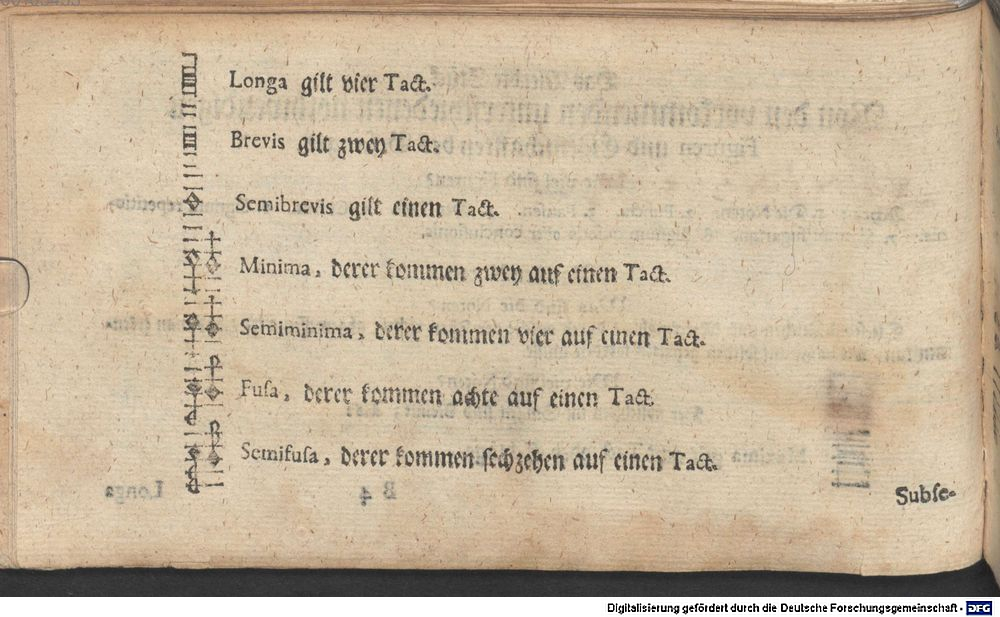 Longa gilt vier Tact.
Brevis gilt zwey Tact.
Semibrevis gilt einen Tact.
Minima, derer kommen zwey auf einen Tact.
Semiminima, derer kommen vier auf einen Tact.
Fusa, derer kommen achte auf einen Tact.
Semifusa, derer kommen sechzehen auf einen Tact.
Subse-
Digitalisierung gefördert durch die Deutsche Forschungsgemeinschaft - DFG